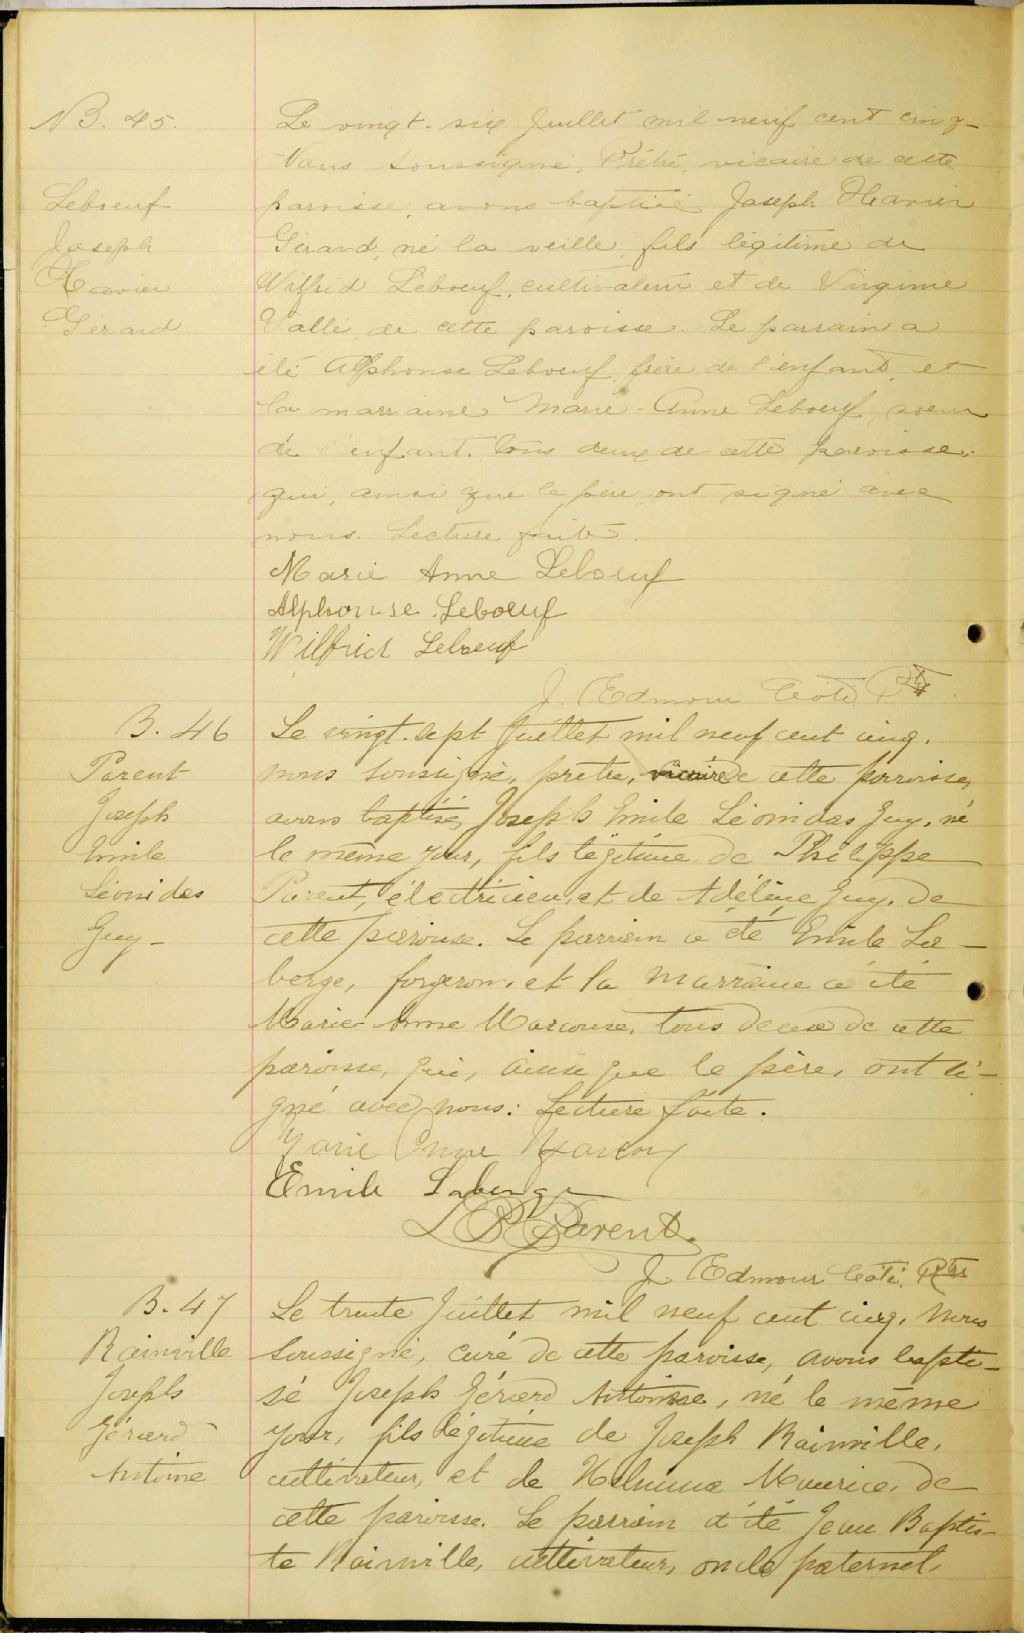 B. 45.
Leboeuf
Joseph
Xavier
Gérard
Le vingt-six Juillet mil neuf cent cinq
Nous soussigné, Prêtre, vicaire de cette
paroisse, avons baptisé Joseph Xavier
Gérard, né la veille, fils légitime de
Wilfrid Leboeuf, cultivateur et de Virginie
Vallé de cette paroisse. Le parrain a
été Alphonse Leboeuf, frère de l'enfant, et
la marraine Marie-Anne Leboeuf, soeur
de l'enfant. tous deux de cette paroisse.
qui, ainsi que le père ont signé avec
nous. Lecture faite.
Marie Anne Leboeuf
Alphonse Leboeuf
Wilfrid Leboeuf
J. Edmour Coté Ptr
B. 46
Parent
Joseph
Emile
Léonidas
Guy
Le vingt-sept Juillet mil neuf cent cinq,
nous soussigné, prêtre, vicaire de cette paroisse,
avons baptisé, Joseph Emile Léonidas Guy, né
le même jour, fils légitime de Philippe
Parent, électricien, et de Adéline Guy, de
cette paroisse. Le parrain a été Emile La-
berge, forgeron, et la marraine a été
Marie-Anne Marcoux, tous deux de cette
paroisse, qui, ainsi que le père, ont si-
gné avec nous. Lecture faite.
Marie Anne Marcoux
Emile Laberge
L P Parent
J. Edmour Coté Ptre
B. 47
Rainville
Joseph
Gérard
Antoine
Le trente Juillet mil neuf cent cinq, nous
soussigné, curé de cette paroisse, avons bapti-
sé Joseph Gérard Antoine, né le même
jour, fils légitime de Joseph Rainville,
cultivateur, et de Maurice, de
cette paroisse. Le parrain a été Jean Baptis-
te Rainville, cultivateur, oncle paternel,